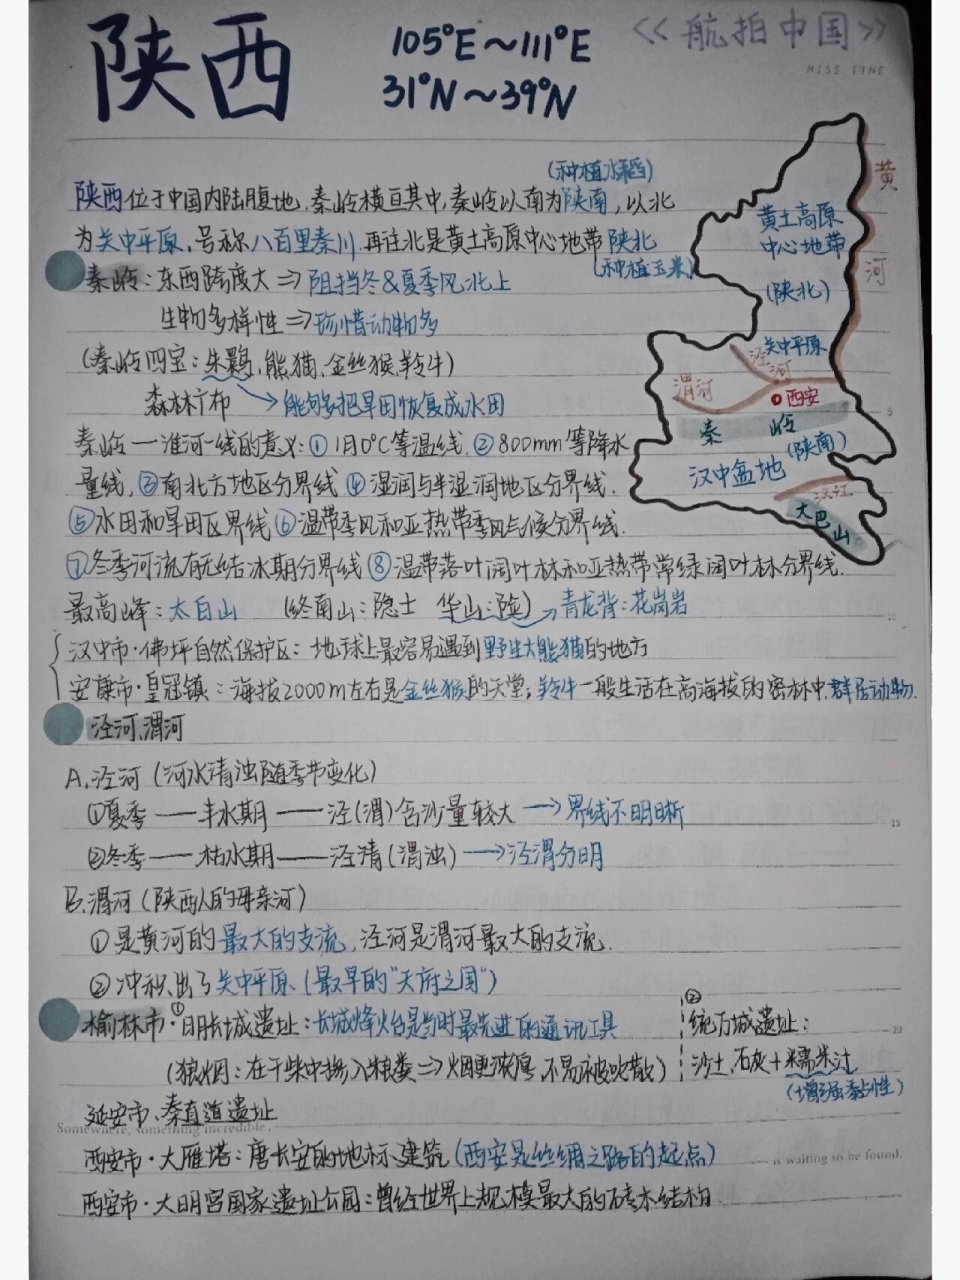 陕西
105°E～111°E
31°N～39°N
<<航拍中国>>
MISS TIME
(种植水稻)
陕西位于中国内陆腹地,秦岭横亘其中,秦岭以南为陕南,以北
为关中平原,号称八百里秦川.再往北是黄土高原中心地带陕北
(种植玉米)
秦岭:东西跨度大⇒阻挡冬&夏季风北上
生物多样性⇒珍惜动物多
(秦岭四宝:朱鹮,熊猫,金丝猴,羚牛)
森林广布
能够把旱田恢复成水田
秦岭一淮河一线的意义:①1月0℃等温线.②800mm等降水
量线,③南北方地区分界线④湿润与半湿润地区分界线.
⑤水田和旱田区界线⑥温带季风和亚热带季风气候分界线.
⑦冬季河流有无结冰期分界线⑧温带落叶阔叶林和亚热带常绿阔叶林分界线.
最高峰:太白山 (终南山:隐士 华山:险)→青龙背:花岗岩
汉中市·佛坪自然保护区:地球上最容易遇到野生大熊猫的地方
安康市·皇冠镇:海拔2000m左右是金丝猴的天堂;羚牛一般生活在高海拔的密林中.群居动物.
黄
河
黄土高原
中心地带
(陕北)
泾河
关中平原
渭河
西安
秦 岭
(陕南)
汉中盆地
汉江
大巴山
泾河,渭河
A.泾河(河水清浊随季节变化)
①夏季——丰水期——泾(渭)含沙量较大→界线不明晰
②冬季——枯水期——泾清(渭浊)→泾渭分明
B.渭河(陕西人的母亲河)
①是黄河的最大的支流,泾河是渭河最大的支流.
②冲积出了关中平原(最早的"天府之国")
榆林市·①明长城遗址:长城烽火台是当时最先进的通讯工具
(狼烟:在干柴中掺入狼粪⇒烟更浓厚,不易被吹散)
②
统万城遗址:
沙土,石灰+糯米汁
(增强黏性)
延安市、秦直道遗址
Somewhere, something incredible,
西安市·大雁塔:唐长安的地标建筑(西安是丝绸之路的起点)
is waiting to be found.
西安市·大明宫国家遗址公园:曾经世界上规模最大的砖木结构
5
10
15
20